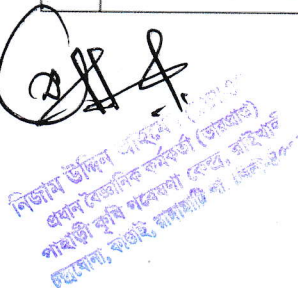 নিজাম উদ্দিন আহমেদ
প্রধান বৈজ্ঞানিক কর্মকর্তা (ভারপ্রাপ্ত)
পাহাড়ী কৃষি গবেষণা কেন্দ্র, রাইখালী
চন্দ্রঘোনা, কাপ্তাই, রাঙ্গামাটি